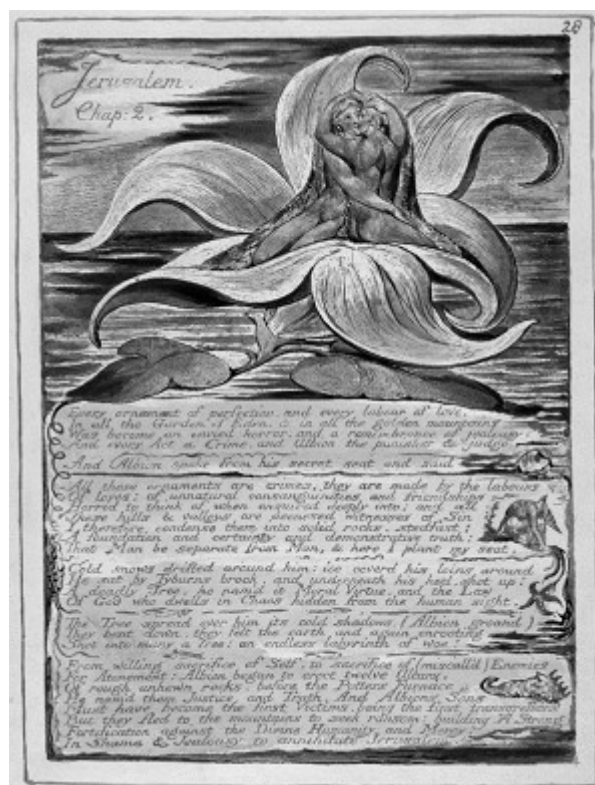 28
Jerusalem.
Chap: 2.
Every ornament of perfection, and every labour of love,
In all the Garden of Eden, & in all the golden mountains
Was become an envied horror, and a remembrance of jealousy:
And every Act a Crime, and Albion the punisher & judge.
And Albion spoke from his secret seat and said
All these ornaments are crimes, they are made by the labours
Of loves: of unnatural consanguinities and friendships
Horrid to think of when enquired deeply into; and all
These hills & valleys are accursed witnesses of Sin
I therefore condense them into solid rocks, stedfast;
A foundation and certainty and demonstrative truth:
That Man be separate from Man, & here I plant my seat.
Cold snows drifted around him: ice coverd his loins around
He sat by Tyburns brook, and underneath his heel, shot up:
A deadly Tree, he nam'd it Moral Virtue, and the Law
Of God who dwells in Chaos hidden from the human sight.
The Tree spread over him its cold shadows, (Albion groand)
They bent down, they felt the earth and again enrooting
Shot into many a Tree: an endless labyrinth of woe!
From willing sacrifice of Self, to sacrifice of (miscall'd) Enemies
For Atonement: Albion began to erect twelve Altars,
Of rough unhewn rocks, before the Potters Furnace
He nam'd them Justice, and Truth. And Albions Sons
Must have become the first Victims, being the first transgressors
But they fled to the mountains to seek ransom: building A Strong
Fortification against the Divine Humanity and Mercy,
In Shame & Jealousy to annihilate Jerusalem.